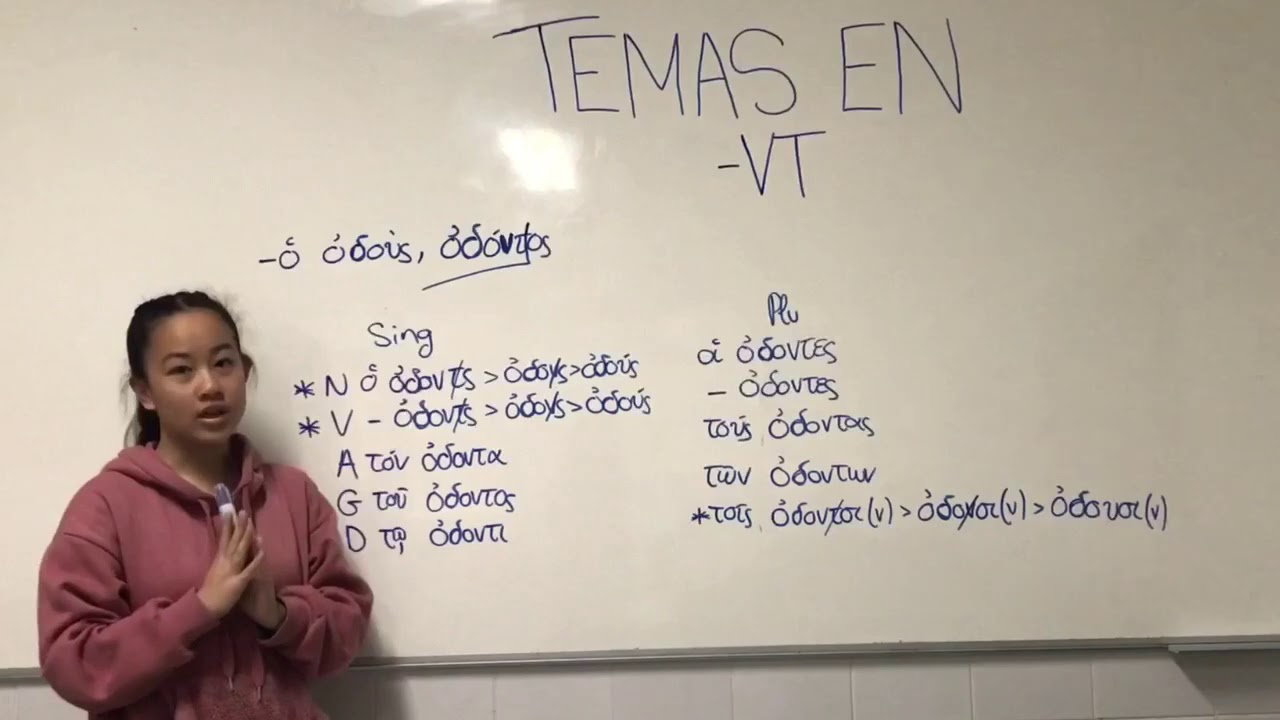 TEMAS EN
-VT
-ὁ ὀδοὺς, ὀδόντος
Sing
* N ὁ ὀδοντς > ὀδονς > ὀδούς
* V - ὀδοντς > ὀδονς > ὀδούς
A τόν ὀδοντα
G τοῦ ὀδοντος
D τῳ ὀδοντι
Plu
αἱ ὀδοντες
- ὀδοντες
τούς ὀδοντας
των ὀδοντων
*τοῖς ὀδοντσι(ν) > ὀδονσι(ν) > ὀδουσι(ν)